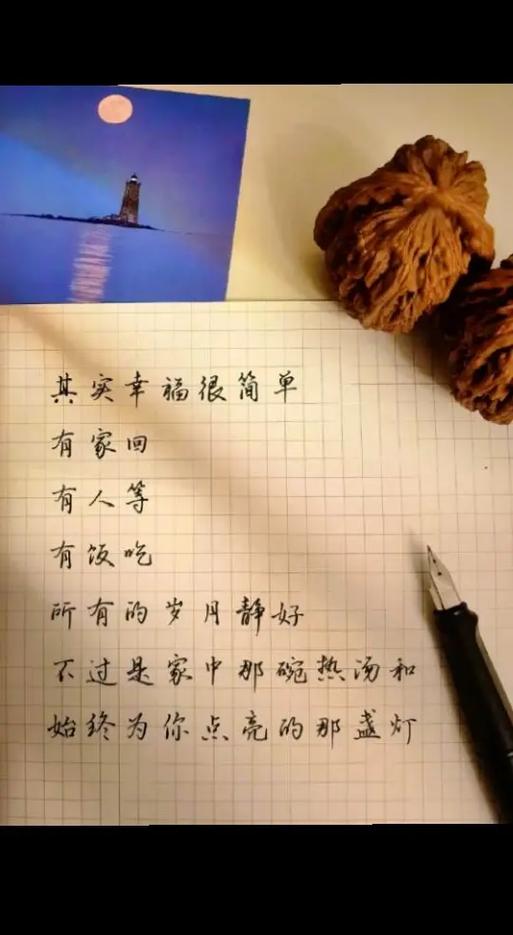 其实幸福很简单
有家回
有人等
有饭吃
所有的岁月静好
不过是家中那碗热汤和
始终为你点亮的那盏灯